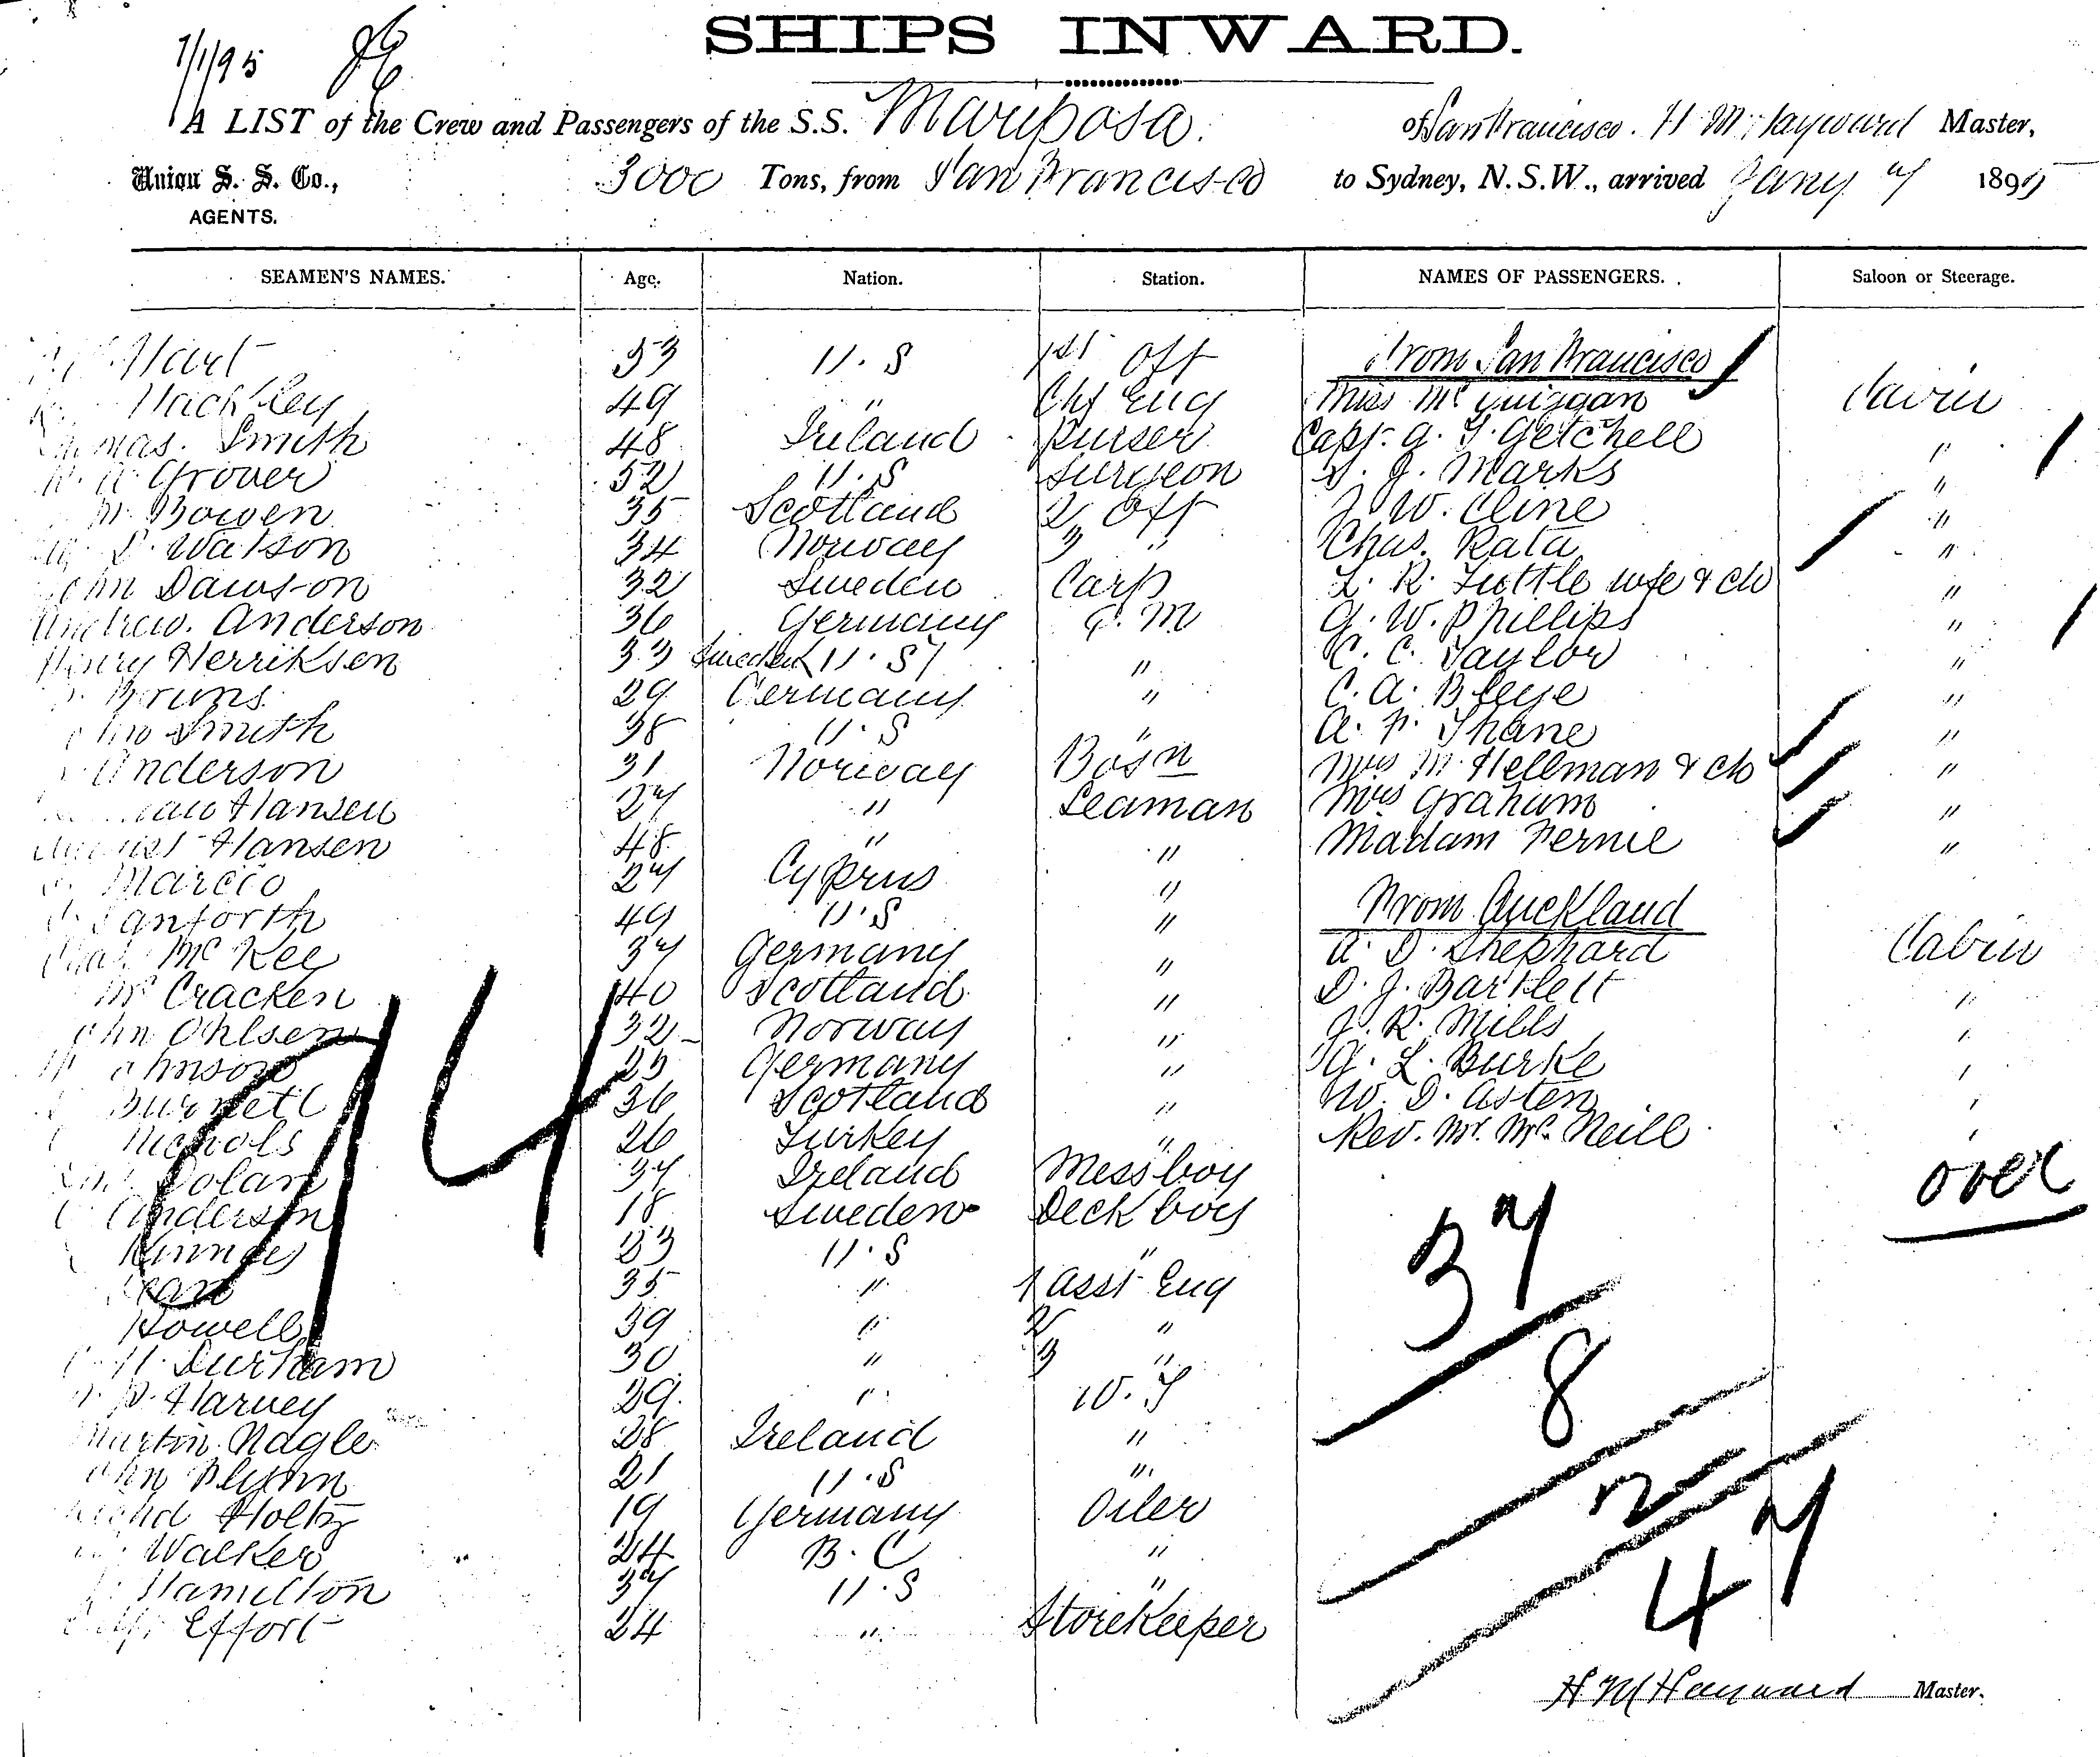 SHIPS INWARD.
7/1/95
A LIST of the Crew and Passengers of the S.S. Mariposa. of San Francisco. H M Hayward Master,
Union S. S. Co., 3000 Tons, from San Francisco to Sydney, N.S.W., arrived Jany 7 1895
AGENTS.
SEAMEN'S NAMES. Age. Nation. Station. NAMES OF PASSENGERS. Saloon or Steerage.
Hart 53 U.S 1st Off From San Francisco
Hackley 49 " Chf Eng Miss McGuiggan Cabin
Thomas. Smith 48 Ireland Purser Capt. G. T. Getchell "
Grover 52 U.S Surgeon S. J. Marks "
Bowen 35 Scotland 2 Off J W. Cline "
Watson 34 Norway 3 " Chas. Rata "
John Dawson 32 Sweden Carp L. R. Tuttle wfe & ch "
Andrew. Anderson 36 Germany Q.M G. W. Phillips "
Henry Herriksen 33 Sweden U.S " C. C. Taylor "
Bruns 29 Germany " C. A. Bleye "
Smith 38 U.S " A. F. Thane "
Anderson 31 Norway Bosn Mrs M. Hellman & ch "
Hansen 27 " Seaman Mrs Graham "
Hansen 48 " " Madam Fernie "
Marcio 27 Cyprus "
Danforth 49 U.S " From Auckland
Chas. McKee 37 Germany " A. D. Shephard Cabin
McCracken 40 Scotland " D. J. Bartlett "
John Ohlsen 32 Norway " J. R. Mills "
Johnson 25 Germany " G. L. Burke "
Burnett 36 Scotland " W. D. Asten "
Nichols 26 Turkey " Rev. Mr. McNeill "
Dolan 37 Ireland Messboy over
Anderson 18 Sweden Deck boy
Kinney 23 U.S "
35 " 1 Asst Eng
Howell 39 " 2 "
H. Durham 30 " 3 "
Harvey 29 " W.T
Martin Nagle 28 Ireland "
John Flynn 21 U.S "
Holtz 19 Germany Oiler
Walker 24 B.C "
Hamilton 37 U.S "
Effort 24 " Storekeeper
94
37
8
2
47
H M Hayward Master.